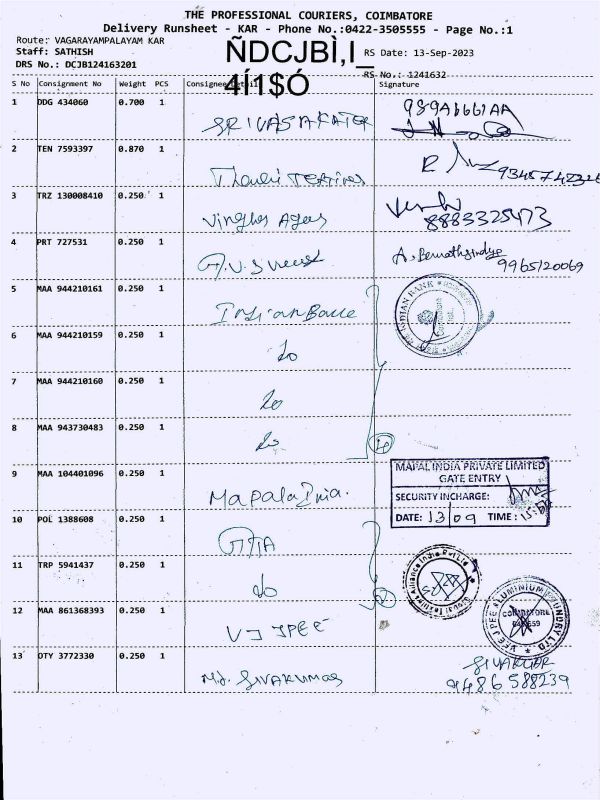 THE PROFESSIONAL COURIERS, COIMBATORE
Delivery Runsheet - KAR - Phone No.:0422-3505555 - Page No.:1
Route: VAGARAYAMPALAYAM KAR
Staff: SATHISH
DRS No.: DCJB124163201
ÑDCJBÌ,I_
4Í1$Ó
RS Date: 13-Sep-2023
RS No.: 1241632
S No Consignment No Weight PCS Consignee Detail Signature
1 DDG 434060 0.700 1
2 TEN 7593397 0.870 1
3 TRZ 130008410 0.250 1 8883325473
4 PRT 727531 0.250 1 9965120069
5 MAA 944210161 0.250 1 Indian Bank INDIAN BANK
6 MAA 944210159 0.250 1 do
7 MAA 944210160 0.250 1 do
8 MAA 943730483 0.250 1 do
9 MAA 104401096 0.250 1 Mapal India.
MAPAL INDIA PRIVATE LIMITED
GATE ENTRY
SECURITY INCHARGE:
DATE: 13/09 TIME:
10 POL 1388608 0.250 1
11 TRP 5941437 0.250 1 do
12 MAA 861368393 0.250 1 VJ JPEE
COIMBATORE
13 DTY 3772330 0.250 1 SIVAKUMAR
9486588239